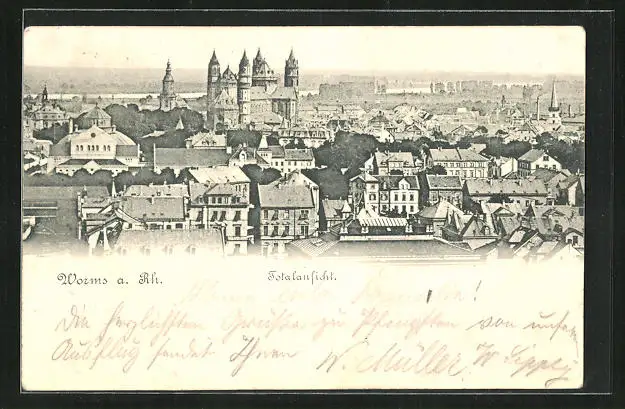 Worms a. Rh. Totalansicht.
Die herzlichsten Grüße zu Pfingsten von unserem
Ausflug sendet Ihnen W. Müller W.